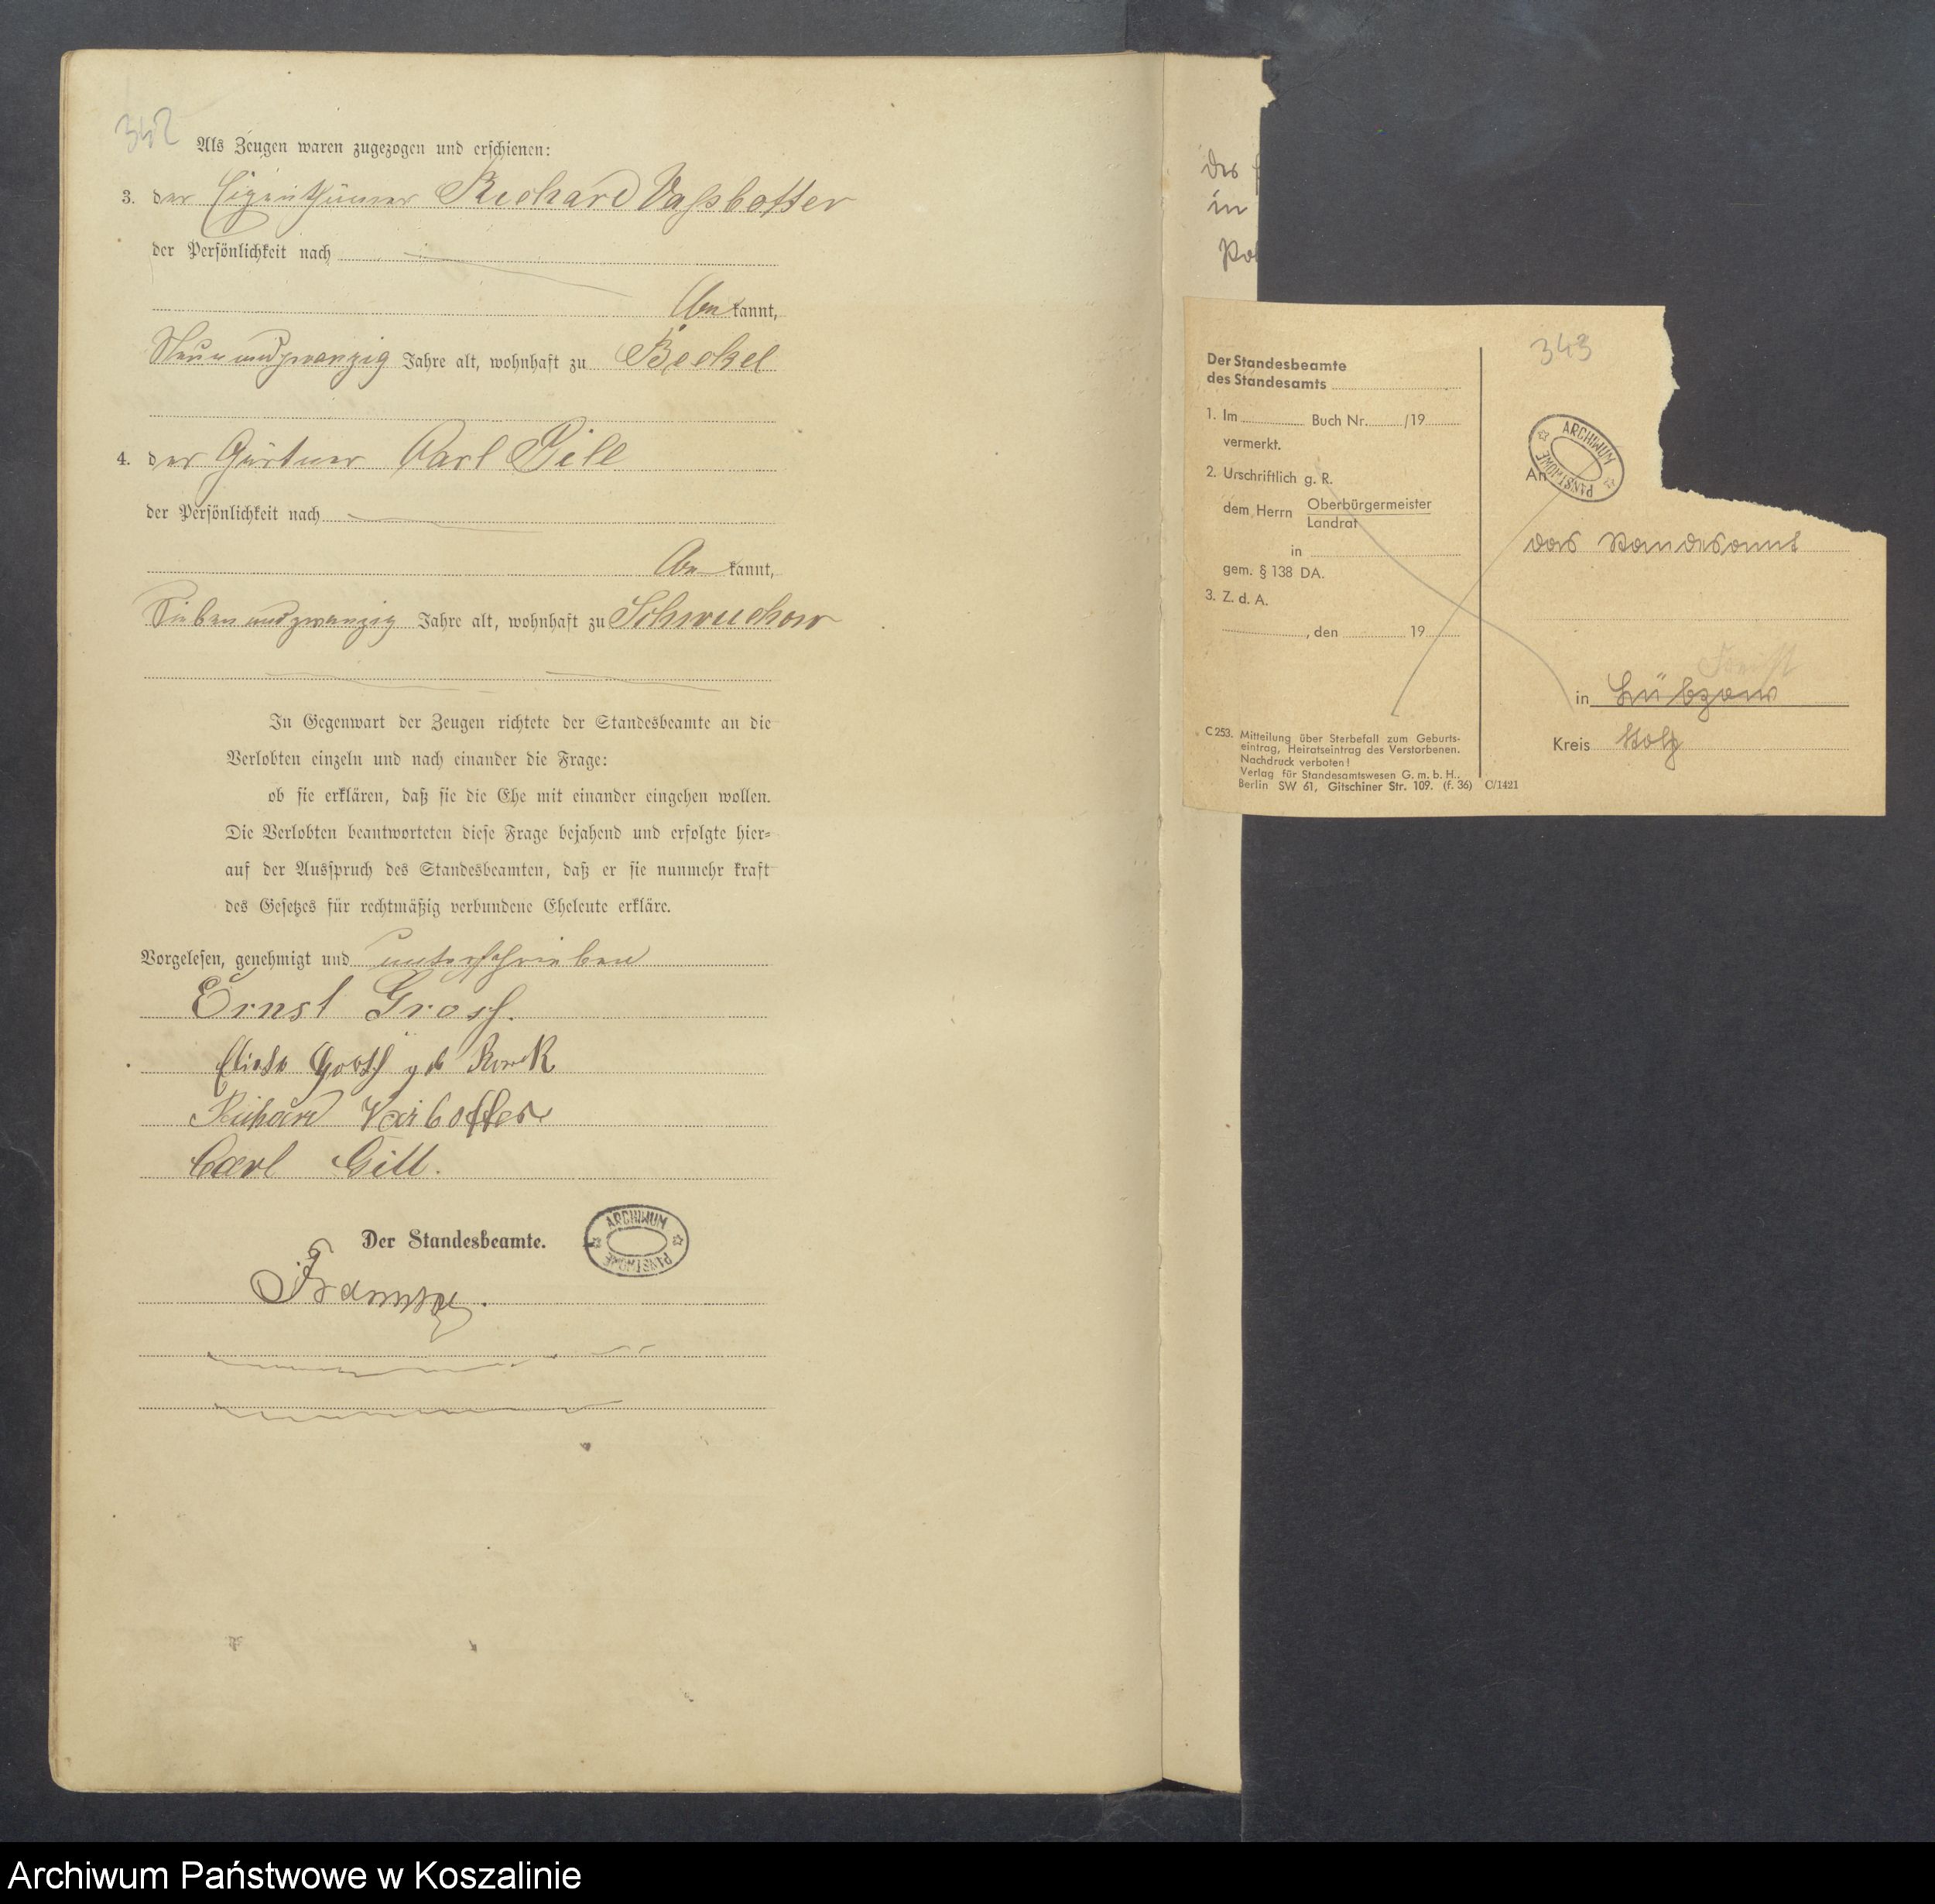 342
Als Zeugen waren zugezogen und erschienen:
3. der Eigenthümer Richard Vahsbotter
der Persönlichkeit nach
kannt,
Neunundzwanzig Jahre alt, wohnhaft zu Böckel
4. der Gärtner Carl Gill
der Persönlichkeit nach
kannt,
Siebenundzwanzig Jahre alt, wohnhaft zu Schwuchow
In Gegenwart der Zeugen richtete der Standesbeamte an die
Verlobten einzeln und nach einander die Frage:
ob sie erklären, daß sie die Ehe mit einander eingehen wollen.
Die Verlobten beantworteten diese Frage bejahend und erfolgte hier-
auf der Ausspruch des Standesbeamten, daß er sie nunmehr kraft
des Gesetzes für rechtmäßig verbundene Eheleute erkläre.
Vorgelesen, genehmigt und unterschrieben
Ernst Grosß.
geb
Richard
Carl Gill.
Der Standesbeamte.
ARCHIWUM PAŃSTWOWE
des
in
343
Der Standesbeamte
des Standesamts
1. Im Buch Nr. /19
vermerkt.
2. Urschriftlich g. R.
dem Herrn Oberbürgermeister
Landrat
in
gem. § 138 DA.
3. Z. d. A.
, den 19
C 253. Mitteilung über Sterbefall zum Geburts-
eintrag, Heiratseintrag des Verstorbenen.
Nachdruck verboten!
Verlag für Standesamtswesen G. m. b. H.,
Berlin SW 61, Gitschiner Str. 109. (f. 36) C/1421
ARCHIWUM PAŃSTWOWE
An
das Standesamt
in Lübzow
Kreis Stolp
Archiwum Państwowe w Koszalinie